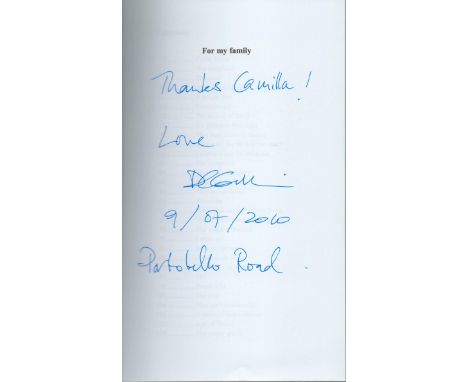 For my family
Thanks Camilla!
Love
9/07/2010
Portobello Road.